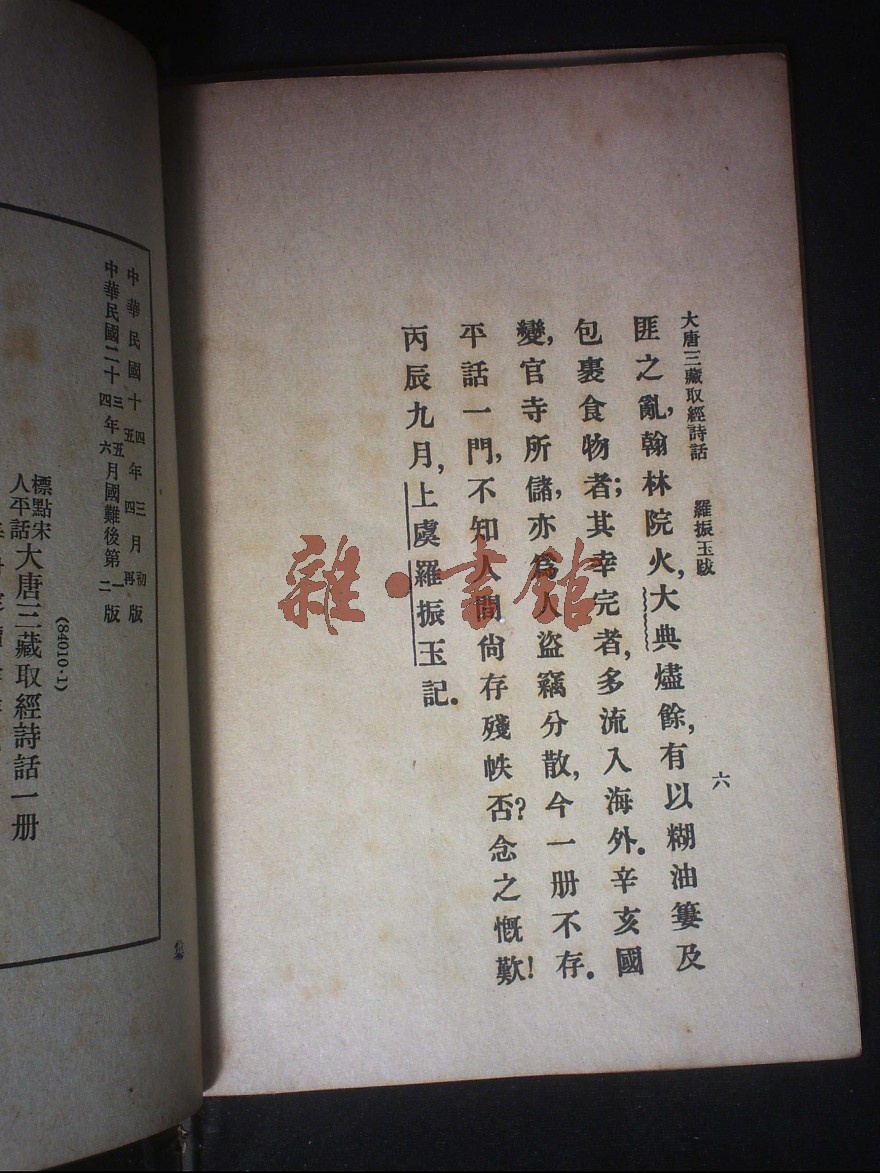 大唐三藏取經詩話　羅振玉跋　六
匪之亂，翰林院火，大典燼餘，有以糊油簍及
包裹食物者；其幸完者，多流入海外。辛亥國
變，官寺所儲，亦爲人盜竊分散，今一册不存。
平話一門，不知人間尙存殘帙否？念之慨歎！
丙辰九月，上虞羅振玉記。
雜·書館
中華民國十四年三月初版
中華民國十五年四月再版
中華民國二十三年五月國難後第一版
中華民國二十四年六月國難後第二版
(84010·1)
標點宋人平話大唐三藏取經詩話一册